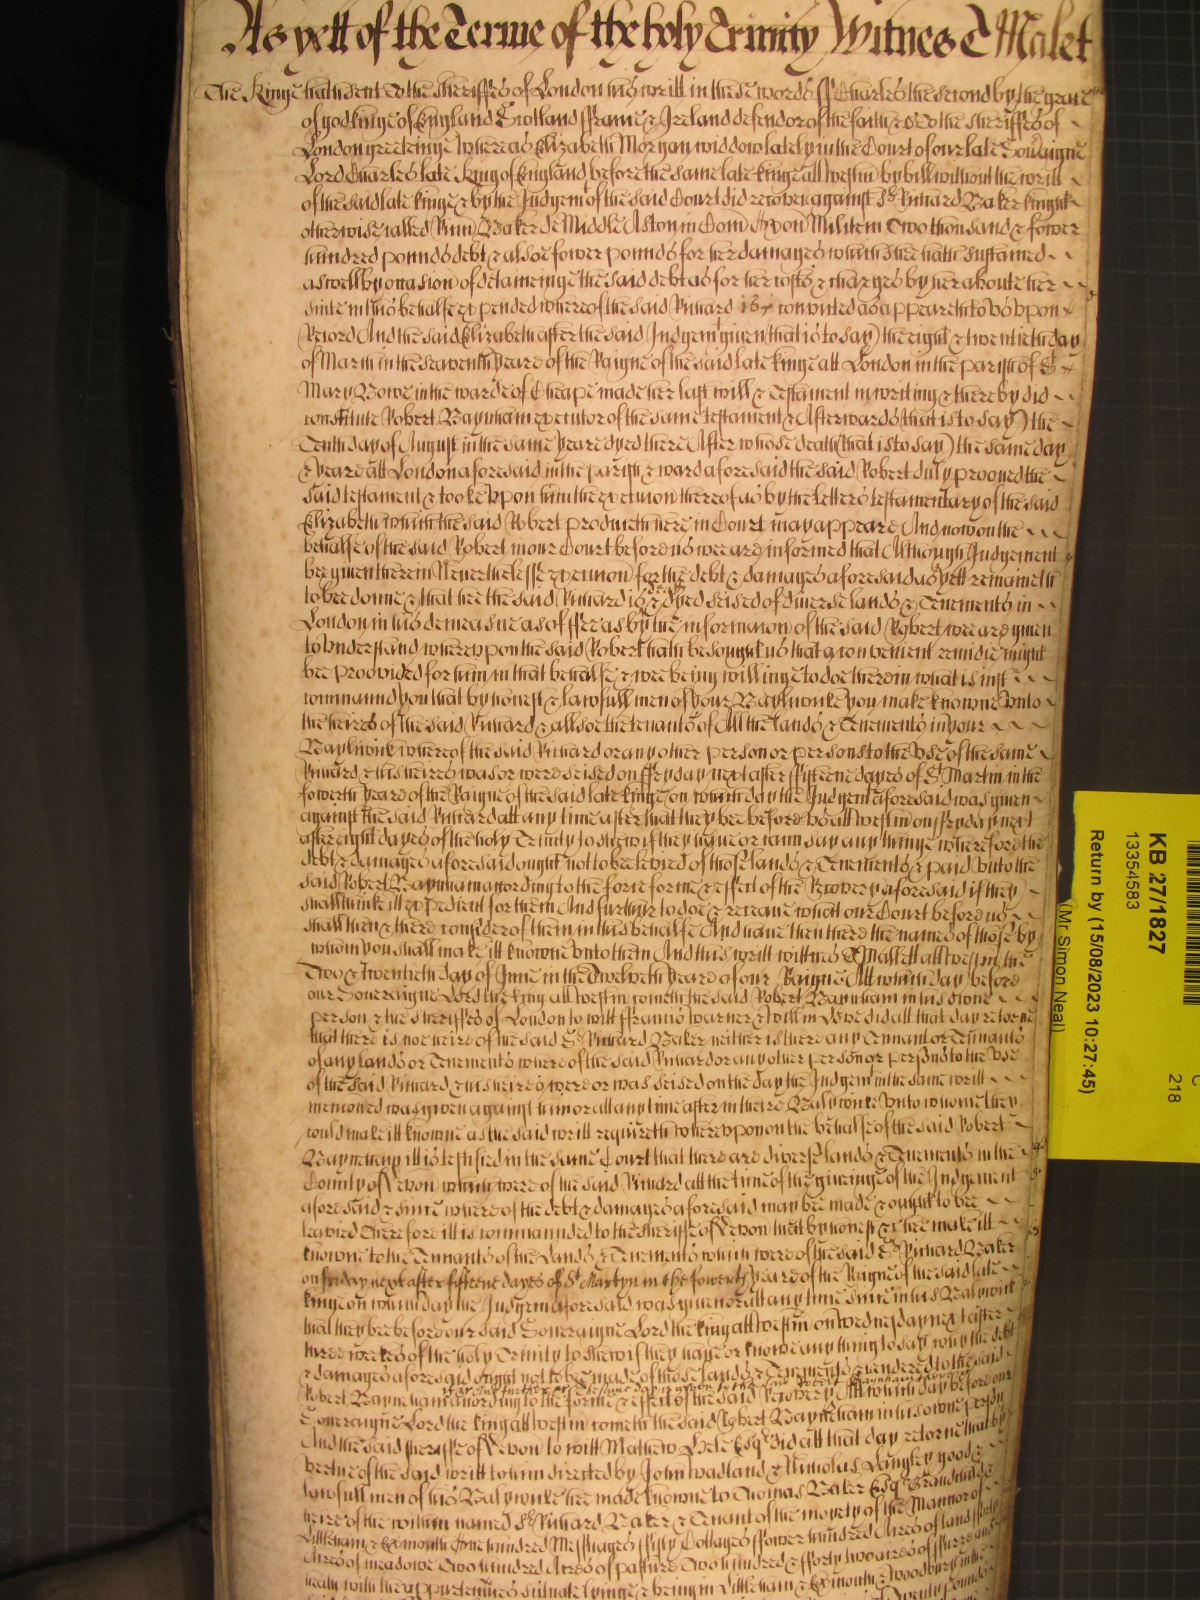 As yett of the Terme of the holy Trinity Witnes T Malet
The Kinge hath sent to the Sheriffes of London his writt in these words ss Charles the second by the grace
of god kinge of England Scotland ffrance & Ireland defendor of the faith &c To the Sheriffes of
London greetinge Whereas Elizabeth Morgan widdow lately in the Court of our late Soveraigne
Lord Charles late King of England before the same late kinge att Westm by bill without the writt
of the said late kinge & by the Judgemt of the said Court did recover against Sr Richard Baker knight
otherwise called Richm Baker de Middle Aston in Com Oxon Militem Two thousand & fower
hundred pounds debt & alsoe fower pounds for her damages which shee hath susteyned
aswell by occasion of deteyneinge the said debt as for her costs & charges by her about her
suite in this behalfe expended whereof the said Richard is convicted as appeareth to us upon
Record And the said Elizabeth after the said Judgemt given (that is to say) the eight & twentieth day
of March in the seaventh yeare of the Raigne of the said late kinge att London in the parish of St
Mary Bowe in the warde of Cheape made her last will & Testament in writing & thereby did
constitute Robert Baynham executor of the same testament & Afterwards (that is to say) the
Tenth day of August in the same yeare dyed there After whose death (that is to say) the same day
& yeare att London aforesaid in the parish & ward aforesaid the said Robert duly prooved the
said testament & tooke upon him the execucion thereof as by the Letters testamentary of the said
Elizabeth which the said Robert produceth here in Court may appeare And now on the
behalfe of the said Robert in our Court before us wee are informed that Although Judgement
bee given therein Neverthelesse execucion for the debt & damages aforesaid as yett remaineth
to bee donne & that hee the said Richard is dyed seised of diverse lands & Tenements in
London in his demeasne as of ffee as by the informacion of the said Robert wee are given
to understand whereupon the said Robert hath besought us that a convenient remidie might
bee prooovided for him in that behalfe & wee being willinge to doe therein what is just
command you that by honest & lawfull men of your Baylywicke you make knowne unto
the heires of the said Richard & allsoe the tenants of All the lands & Tenements in your
Baylywick whereof the said Richard or any other person or persons to the use of the same
Richard & his heires was or were seised on ffryday next after ffifteene dayes of St Martin in the
fowerth yeard of the Raigne of the said late kinge on which day the Judgemt aforesaid was given
against the said Richard att any time after that they bee before us att Westm on ffryday next
after eight dayes of the holy Trinity to shew if they have or can say any thinge wherefore the
debt & damages aforesaid ought not to bee levied of those lands & Tenements & paid unto the
said Robert Baynham according to the force forme & effect of the Recovery aforesaid if they
shall thinke itt expedient for them And further to doe & receave whatt our Court before us
shall then & there consider of them in this behalfe And have then there the names of those by
whom you shall make itt knowne unto them And this writt wittnes T Mallett att Westm the
Two & twentieth day of June in the Twelveth yeard of our Raigne Att which day before
our Sovereigne Lord the king att Westm cometh the said Robert Baynham in his owne
person & the sheriffes of London to witt ffrancis Warner & Willm Love did att that day retorne
that there is not heire of the said Sr Richard Baker neither is there any Tennant or Tennants
of any lands or Tenements whereof the said Richard or any other person or persons to the use
of the said Richard & his heires were or was seised on the day the Judgemt in the same writt
mencioned was given against him or att any time after in theire Balywicke unto whome they
could make itt knowne as the said writt requireth whereupon on the behalfe of the said Robert
Baynham itt is testified in the same Court that there are diverse lands & Tenements in the
County of Devon which were of the said Richard att the time of the giveinge of the Judgement
aforesaid & since whereof the debt & damages aforesaid may bee made & ought to bee
leavied Therefore itt is commannded to the sheriffe of Devon that by honest &c hee make itt
knowne to the Tennants of the Lands & Tenements which were of the said Sr Richard Baker
on fryday next after fifteene dayes of St Martyn in the fowerth yeard of the Raigne of the said late
kinge on which day the Judgemt aforesaid was given or att any time since in his Balywick
that they bee before our said Soveraigne Lord the king att Westm on Wednesday next after
three weekes of the holy Trinity to shew if they have or know any thing to say why the debt
& damages aforesaid ought not to bee made of those lands & Tenements & rendered to the said
The same day is given to the said Robert Baynham
Robert Baynham according to the forme & effect of the said Recovery Att which day before our
Soveraigne Lord the king att Westm cometh the said Robert Baynham in his owne person
And the said sheriffe of Devon to witt Mathew Hele Esqr did att that day retorne that by
vertue of the said writt to him directed by John Wadland & Nicholas Langley good &
lawfull men of his Balywicke hee made knowne to Thomas Baker Esqr Grandchild &
heire of the within named Sr Richard Baker & Tenant of the moyety of the Mannor of
Littleham & Exmouth One hundred Messuages ffifty Cottages ffower hundred Acres of land fforty
Acres of meadowe Two hundred Acres of pasture Two hundred & fforty two acres of ffurze and
heath with the appurtenences scituate lyinge & being in Littleham & Exmouth & Woodbury in the
KB 27/1827
13354583
Return by (15/08/2023 10:27:45)
(Mr Simon Neal)
C
218